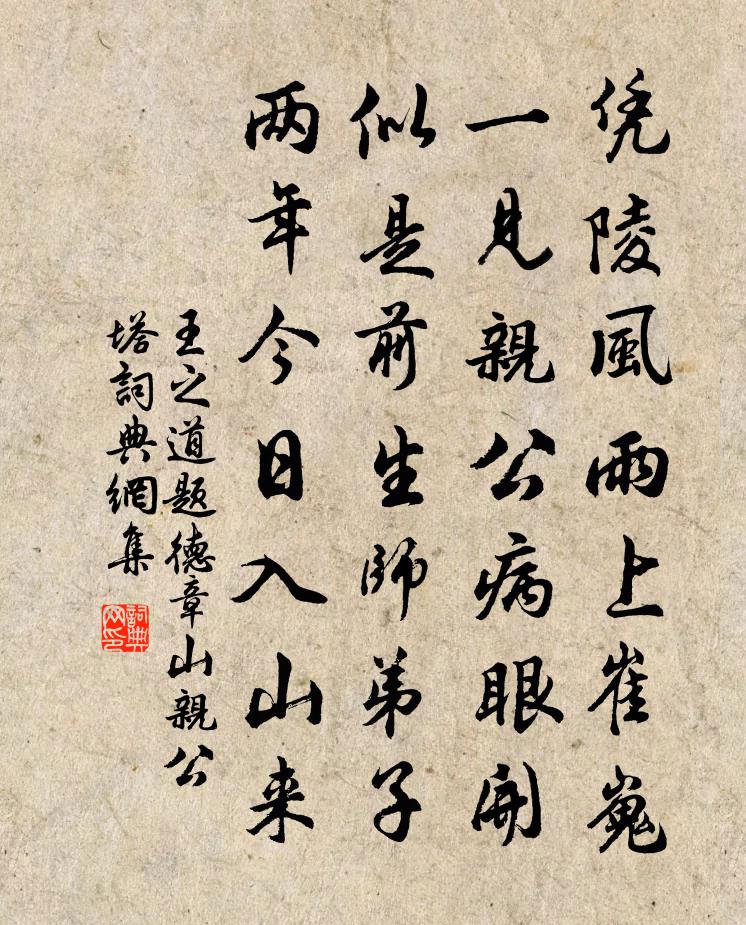 凭陵風雨上崔嵬
一見親公病眼開
似是前生師弟子
两年今日入山来
王之道題德章山親公
塔詞典網集
詞典
网印